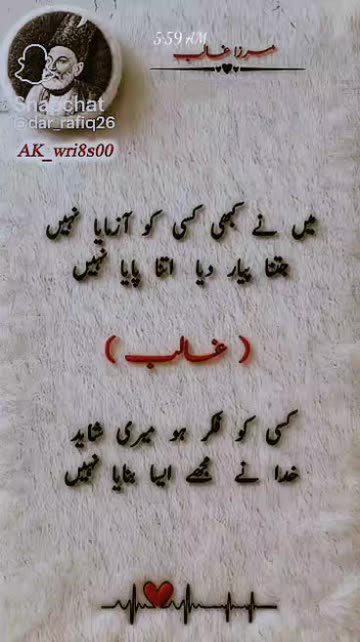 5:59 AM
مرزا غالب
Snapchat
@dar_rafiq26
AK_wri8s00
میں نے کبھی کسی کو آزمایا نہیں
جتنا پیار دیا اتنا پایا نہیں
( غالب )
کسی کو فکر ہو میری شاید
خدا نے مجھے ایسا بنایا نہیں